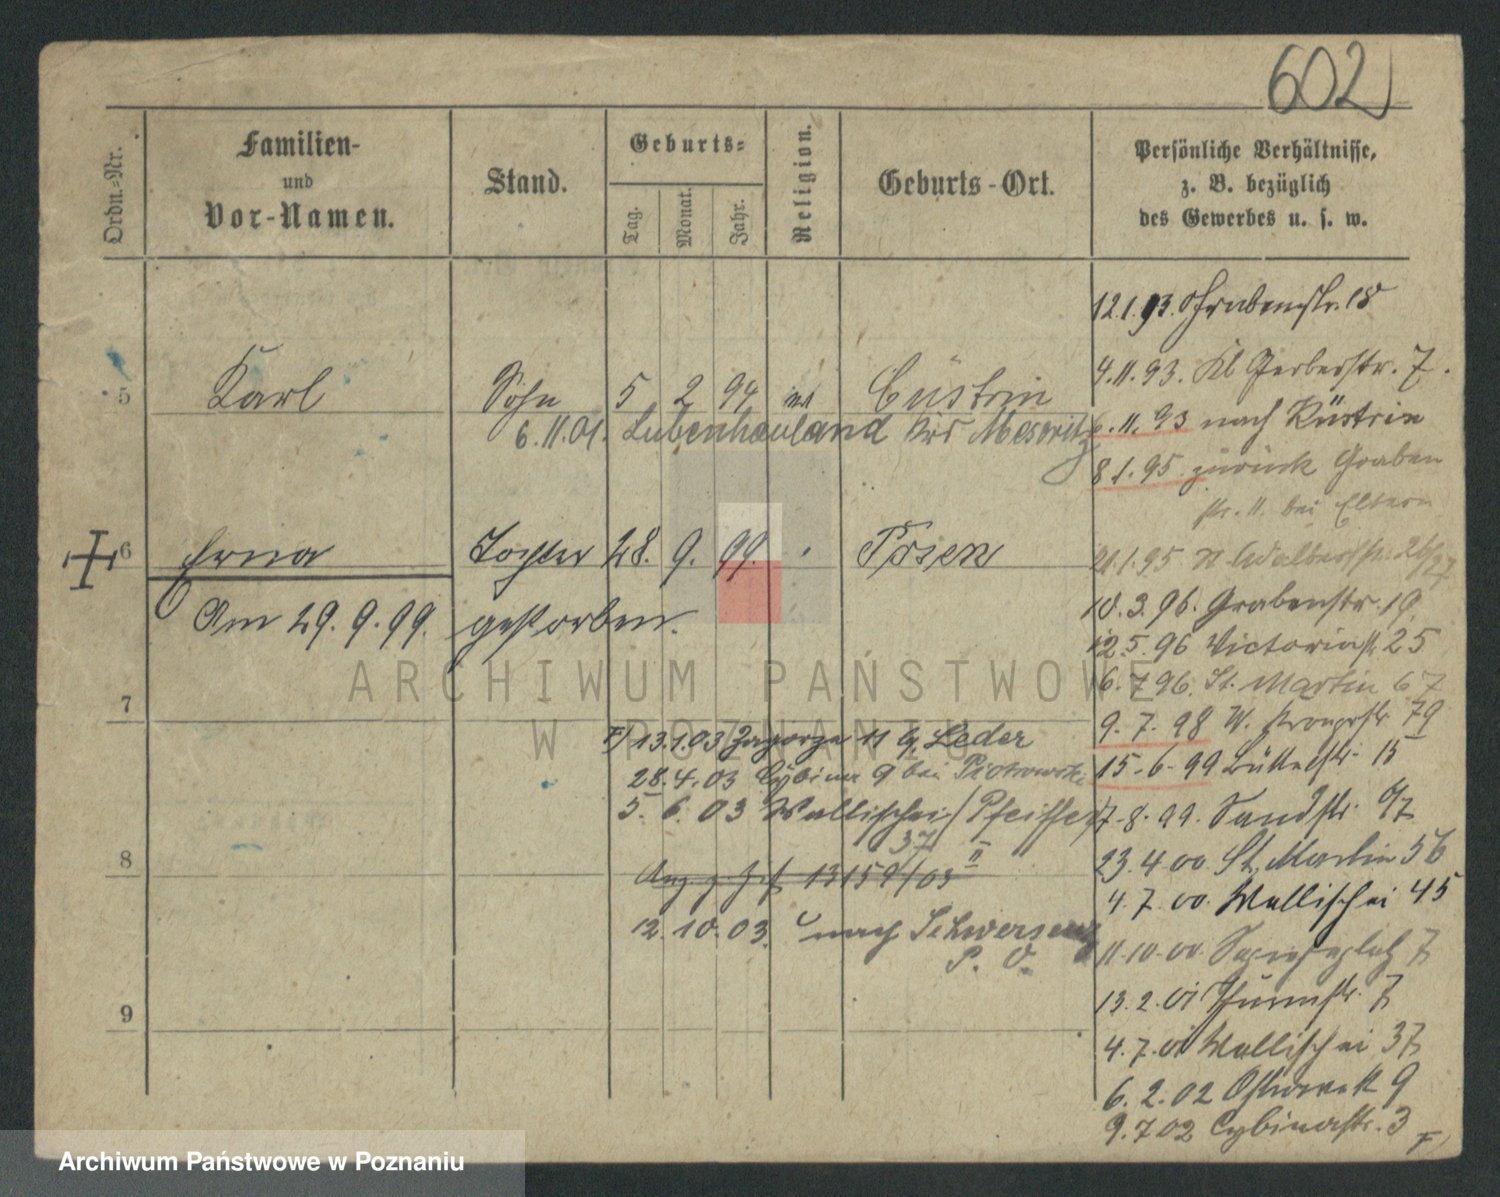 602
Ordn.-Nr.
Familien-
und
Vor-Namen.
Stand.
Geburts-
Tag.
Monat.
Jahr.
Religion.
Geburts-Ort.
Persönliche Verhältnisse,
z. B. bezüglich
des Gewerbes u. s. w.
5 Karl Sohn 5 2 94 Cüstrin
6.11.01. Lubenhauland Krs Meseritz
6 Erna Tochter 28. 9. 99. Posen
Am 29.9.99. gestorben.
7
8
9
F) 13.1.03 Zagorze 11 Leder
28.4.03 Cybina 9 bei Piotrowski
5. 6. 03 Wallischei / Pfeiffer
37 II
13159/03
12.10.03. nach Schwersenz
P. O.
12.1.93. Grabenstr. 18
4.11.93. Kl Gerberstr. 7.
6.11.93 nach Küstrin
8.1.95 zurück Graben
str. 11. bei Eltern
21.1.95 26/27
10.3.96. Grabenstr. 19
12.5.96 Victoriastr. 25
6.7.96. St. Martin 67
9.7.98 W.
15.6.99 Büttelstr. 15
7.8.99. Sandstr.
23.4.00. St. Martin 56
4.7.00. Wallischei 45
11.10.00. Sapiehaplatz 7
13.2.01 Thurmstr. 7
4.7.01 Wallischei 37
6.2.02 Ostrowek 9
9.7.02 Cybinastr. 3 F)
ARCHIWUM PAŃSTWOWE
W POZNANIU
Archiwum Państwowe w Poznaniu